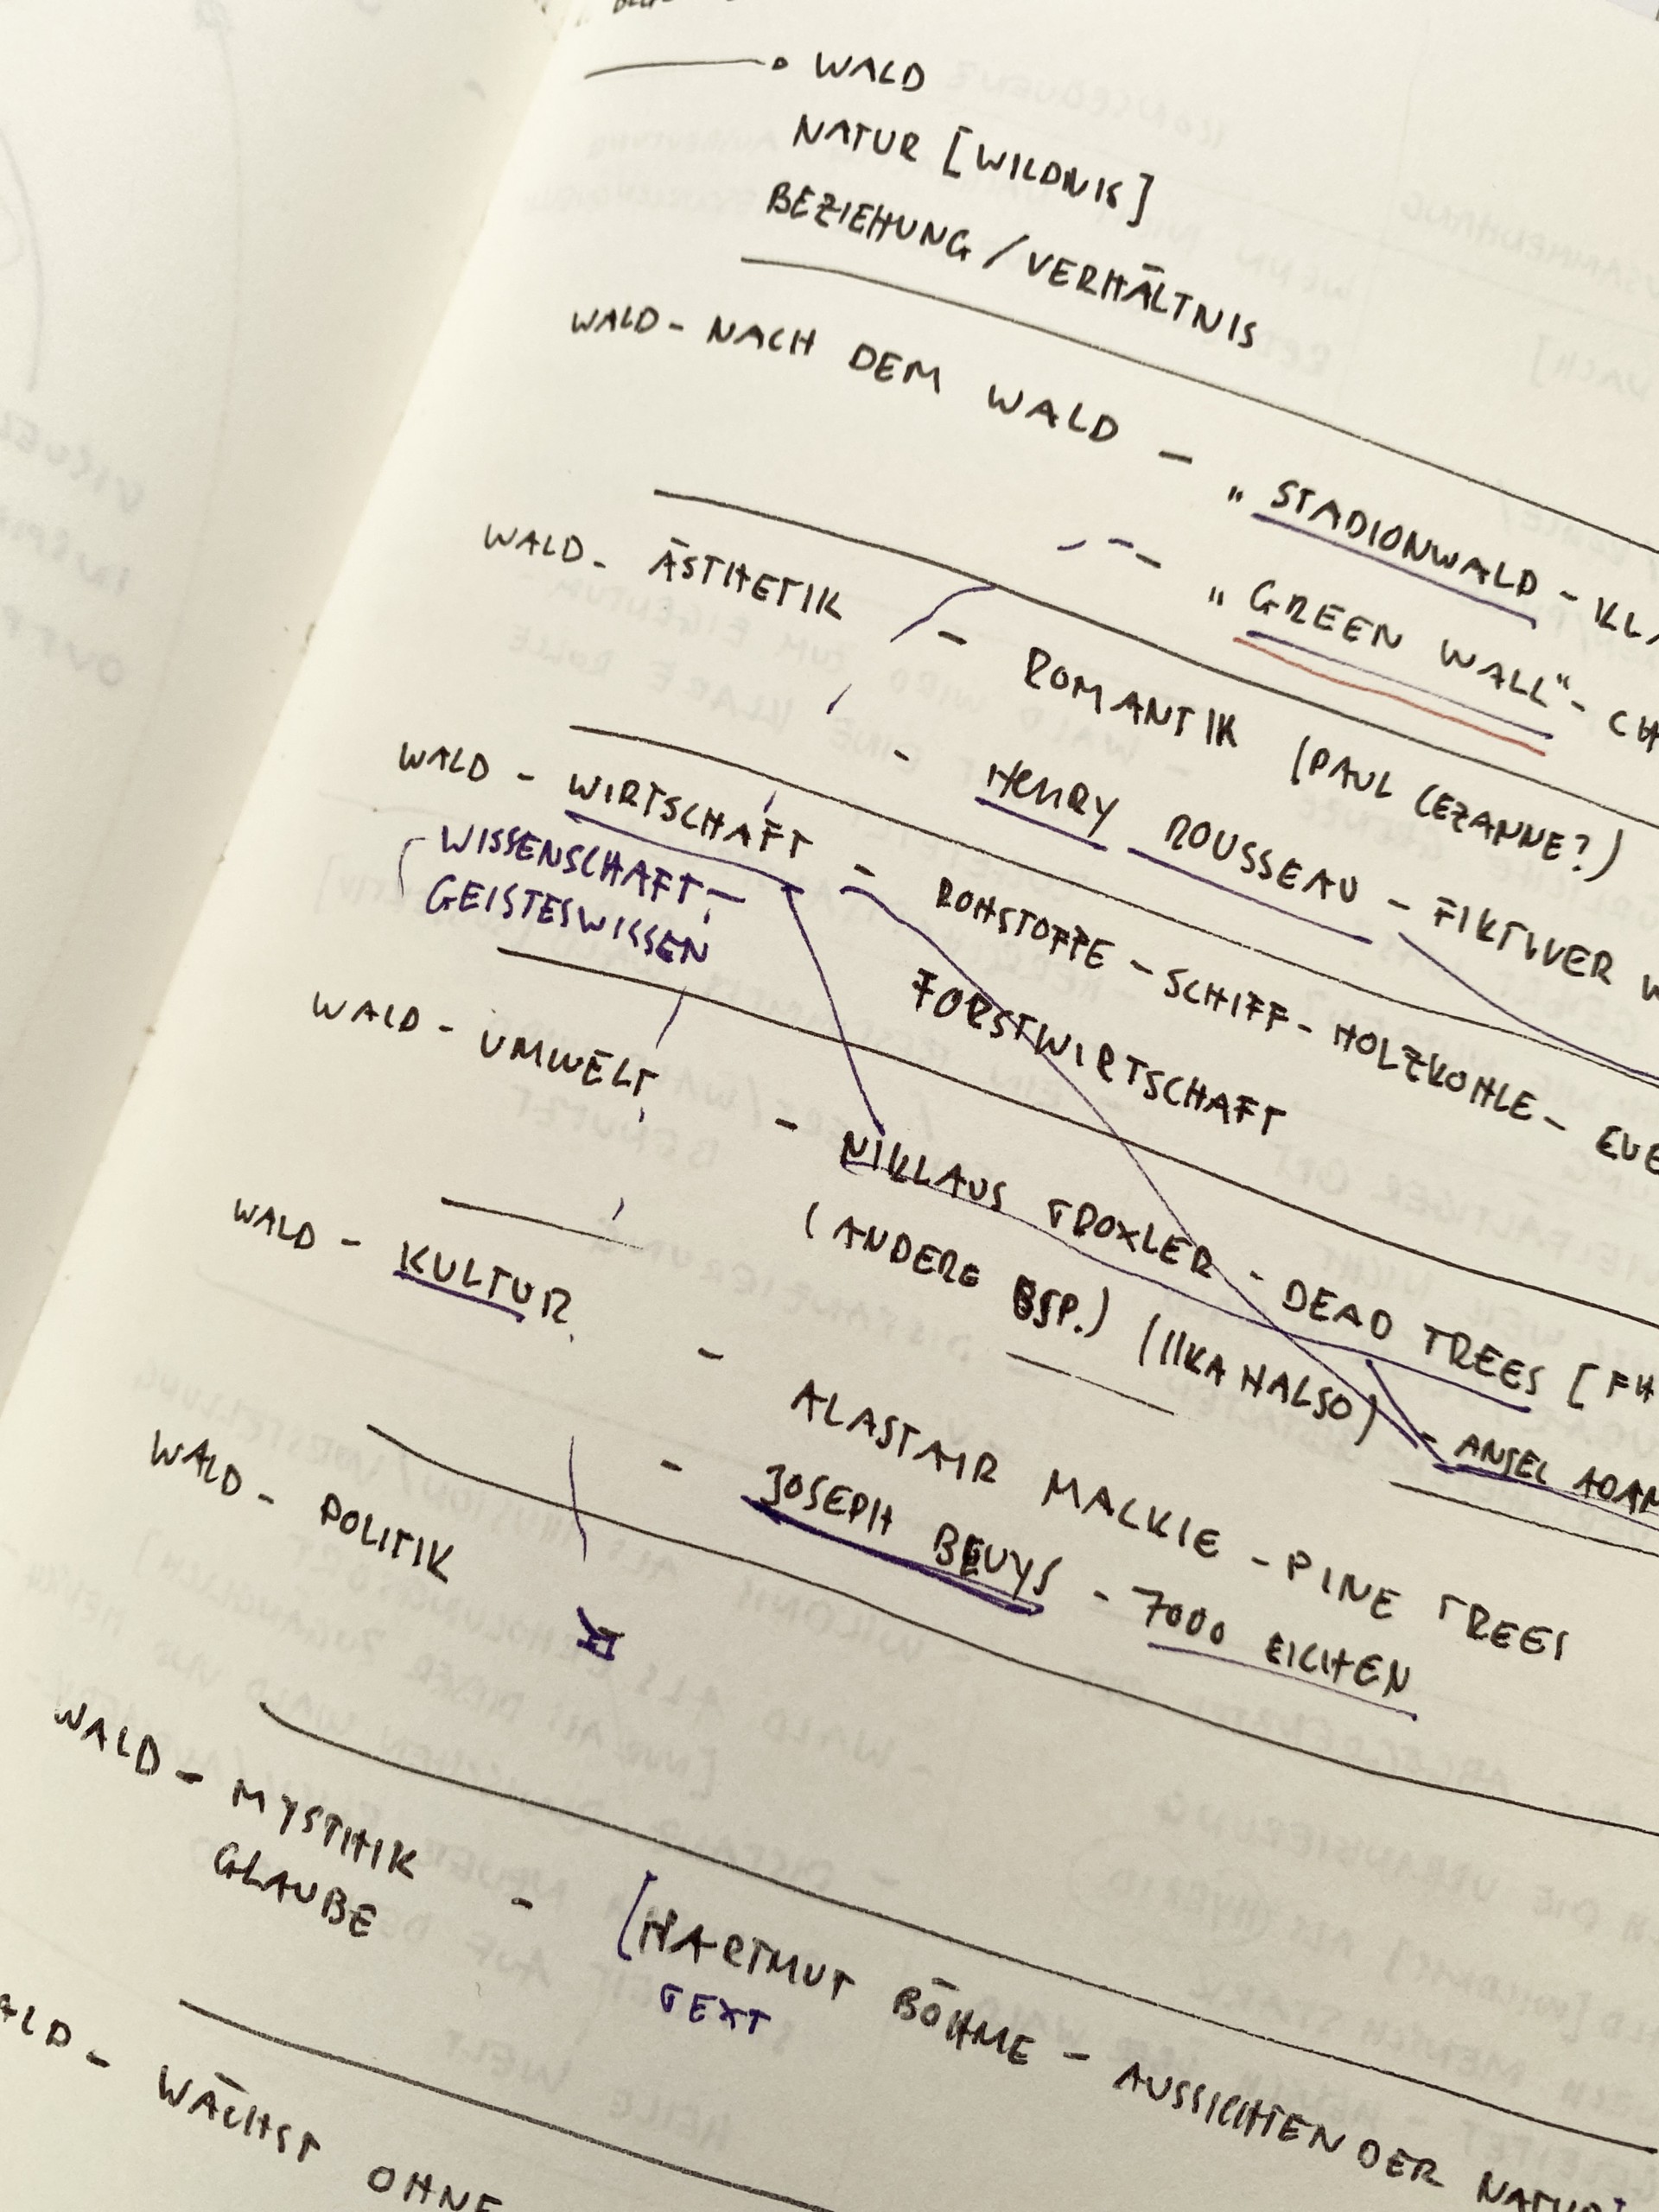 WALD
NATUR [WILDNIS]
BEZIEHUNG / VERHÄLTNIS
WALD - NACH DEM WALD - „STADIONWALD -
- „GREEN WALL" -
WALD - ÄSTHETIK - ROMANTIK (PAUL CEZANNE?)
- HENRY ROUSSEAU - FIKTIVER
WALD - WIRTSCHAFT - ROHSTOFFE - SCHIFF - HOLZKOHLE -
WISSENSCHAFT -
GEISTESWISSEN
FORSTWIRTSCHAFT
WALD - UMWELT - NIKLAUS TROXLER - DEAD TREES [FH
(ANDERE BSP.) (IIKA HALSO) - ANSEL ADAM
WALD - KULTUR - ALASTAIR MACKIE - PINE TREES
- JOSEPH BEUYS - 7000 EICHEN
WALD - POLITIK
WALD - MYSTHIK
GLAUBE
- [HARTMUT BÖHME - AUSSICHTEN DER NATUR]
TEXT
ALD - WÄCHST OHNE